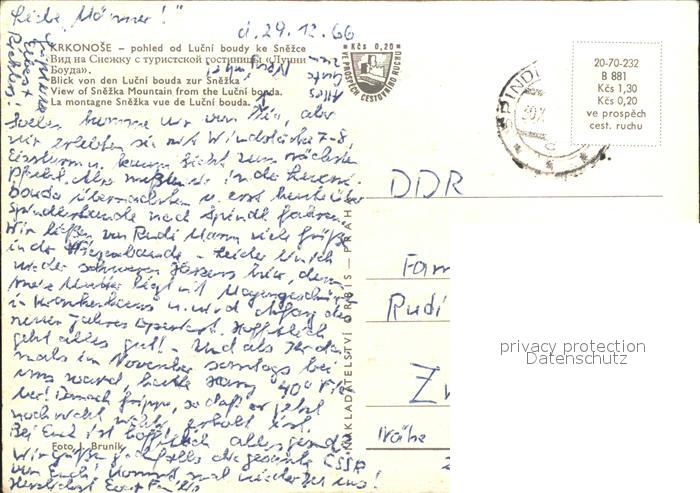 Liebe Männer!
d. 29.12.66
KRKONOŠE – pohled od Luční boudy ke Sněžce
Вид на Снежку с туристской гостиницы «Лучни
Боуда».
Blick von den Luční bouda zur Sněžka
View of Sněžka Mountain from the Luční bouda.
La montagne Sněžka vue de Luční bouda.
Kčs 0,20
VE PROSPĚCH CESTOVNÍHO RUCHU
20-70-232
B 881
Kčs 1,30
Kčs 0,20
ve prospěch
cest. ruchu
Alles Gute
kommen wir von hier, aber
wir erlebten sie mit Windstärke 7-8,
Eissturm u. kaum Sicht zum nächsten
in da
bouda übernachten u. erst heute über
Spindlerbaude nach Spindl fahren.
Wir ließen von Rudi Mann viele Grüße
in der Wiesenbaude. – Leider bin ich
wieder schweren Herzens hier, denn
meine Mutter liegt mit Magengeschwür
in Krankenhaus u. wird anfang des
neuen Jahres operiert. Hoffentlich
geht alles gut! – Und als Ihr da-
mals im November sonntags bei
uns ward, hatte 40° Fie-
ber! Danach Grippe, so daß er jetzt
noch nicht erholt ist.
Bei Euch ist hoffentlich alles gesund.
Wir grüßen die gesamte ČSSR
von Euch! Kommt mal wieder zu uns!
Herzlichst Eure Fam.
Foto J. Bruník
NAKLADATELSTVÍ ORBIS — PRAHA
DDR
Fam
Rudi
Zw
Nähe
privacy protection
Datenschutz